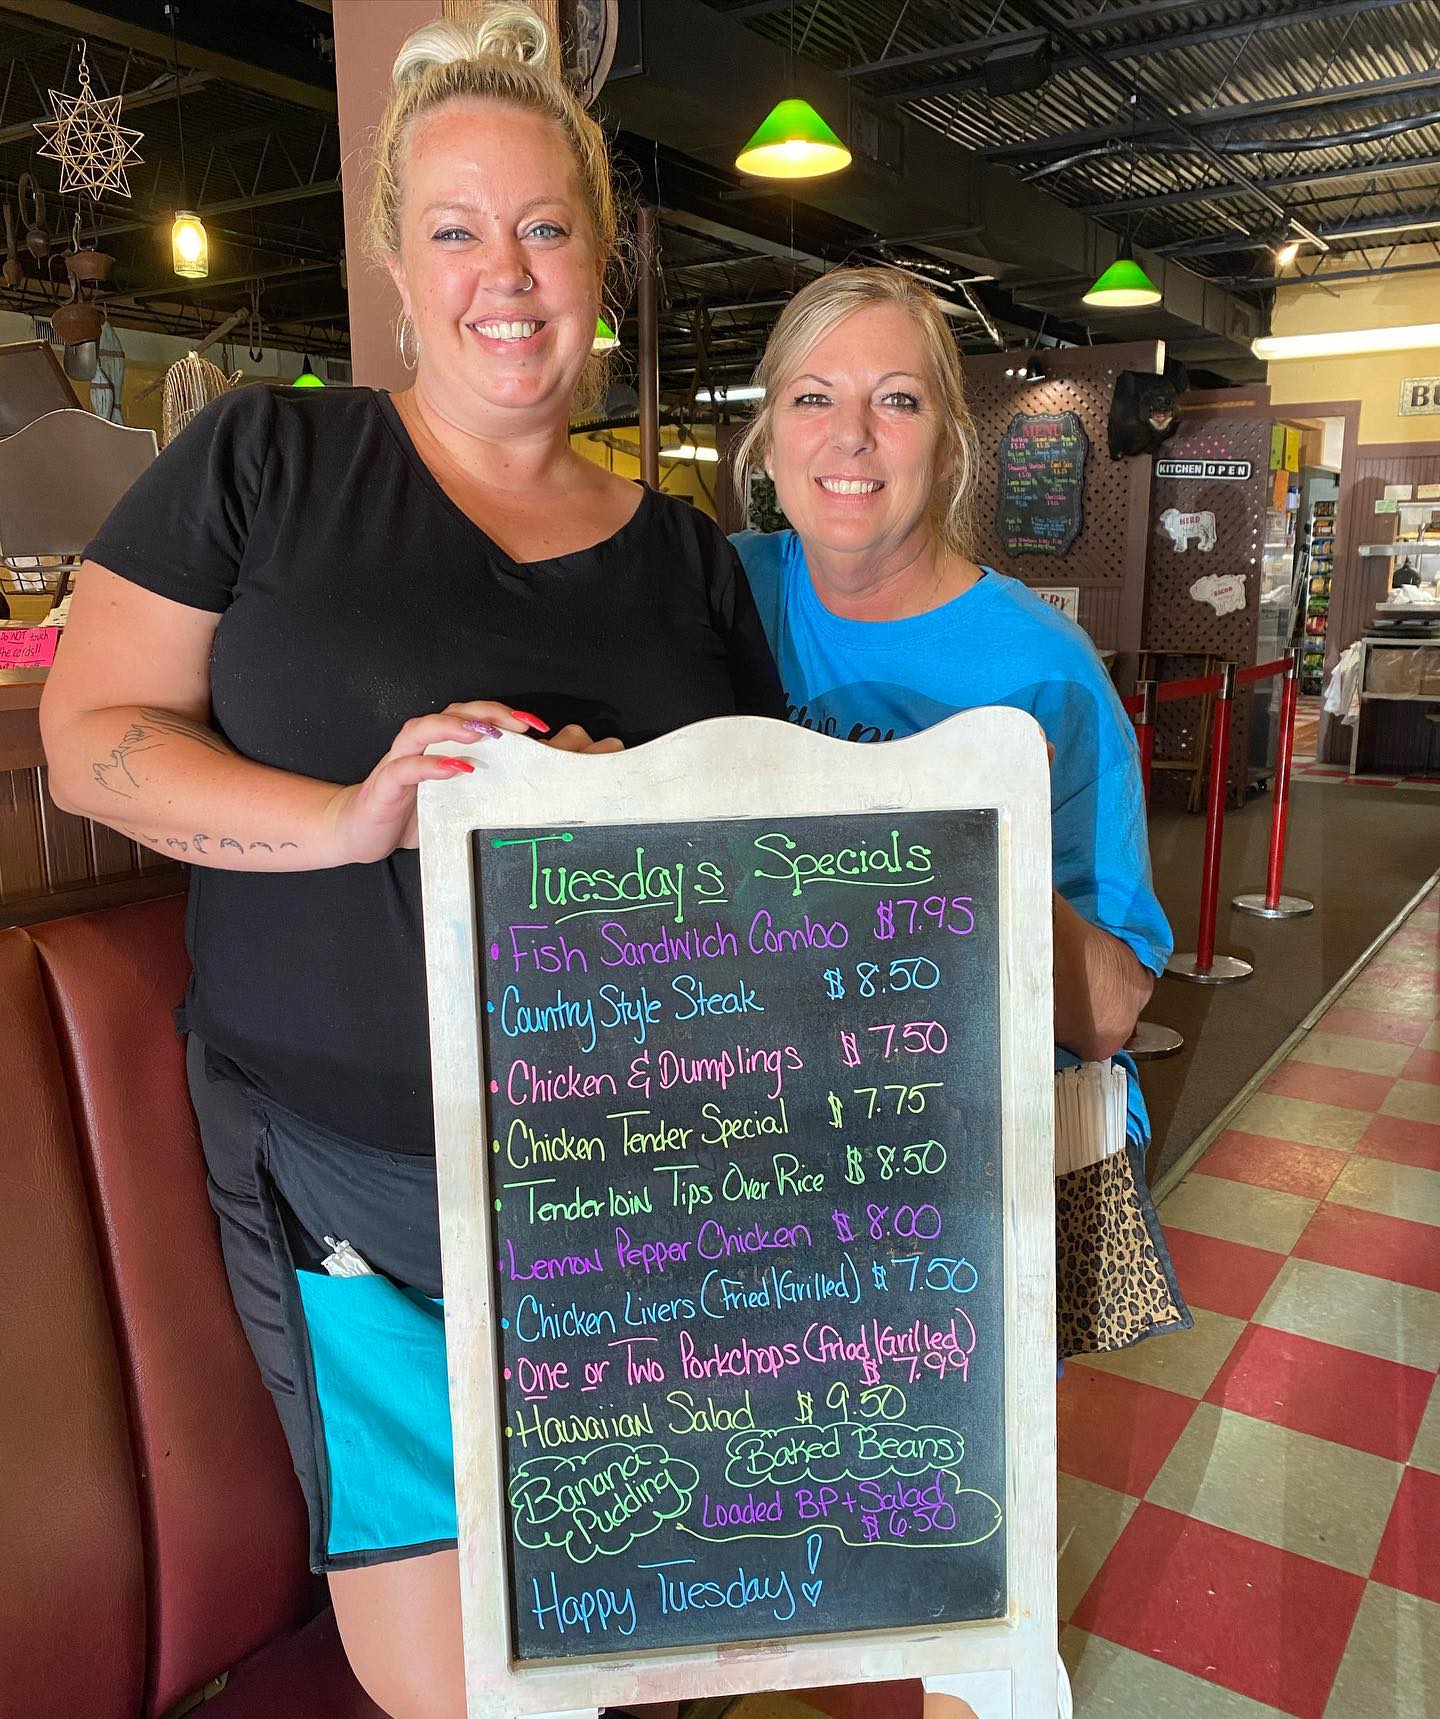 Tuesday's Specials
• Fish Sandwich Combo $7.95
• Country Style Steak $8.50
• Chicken & Dumplings $7.50
• Chicken Tender Special $7.75
• Tenderloin Tips Over Rice $8.50
• Lemon Pepper Chicken $8.00
• Chicken Livers (Fried/Grilled) $7.50
• One or Two Porkchops (Fried/Grilled)
$7.99
• Hawaiian Salad $9.50
Banana
Pudding
Baked Beans
Loaded BP + Salad
$6.50
Happy Tuesday!
Do NOT touch
the cords!!
MENU
KITCHEN OPEN
HERD
BACON